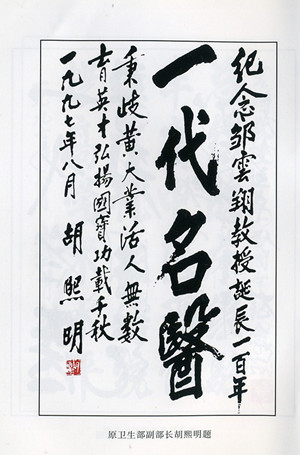 纪念邹雲翔教授誕辰一百年
一代名醫
秉歧黄大業活人無数
育英才弘揚國寳功載千秋
一九九七年八月 胡熙明
原卫生部副部长胡熙明题